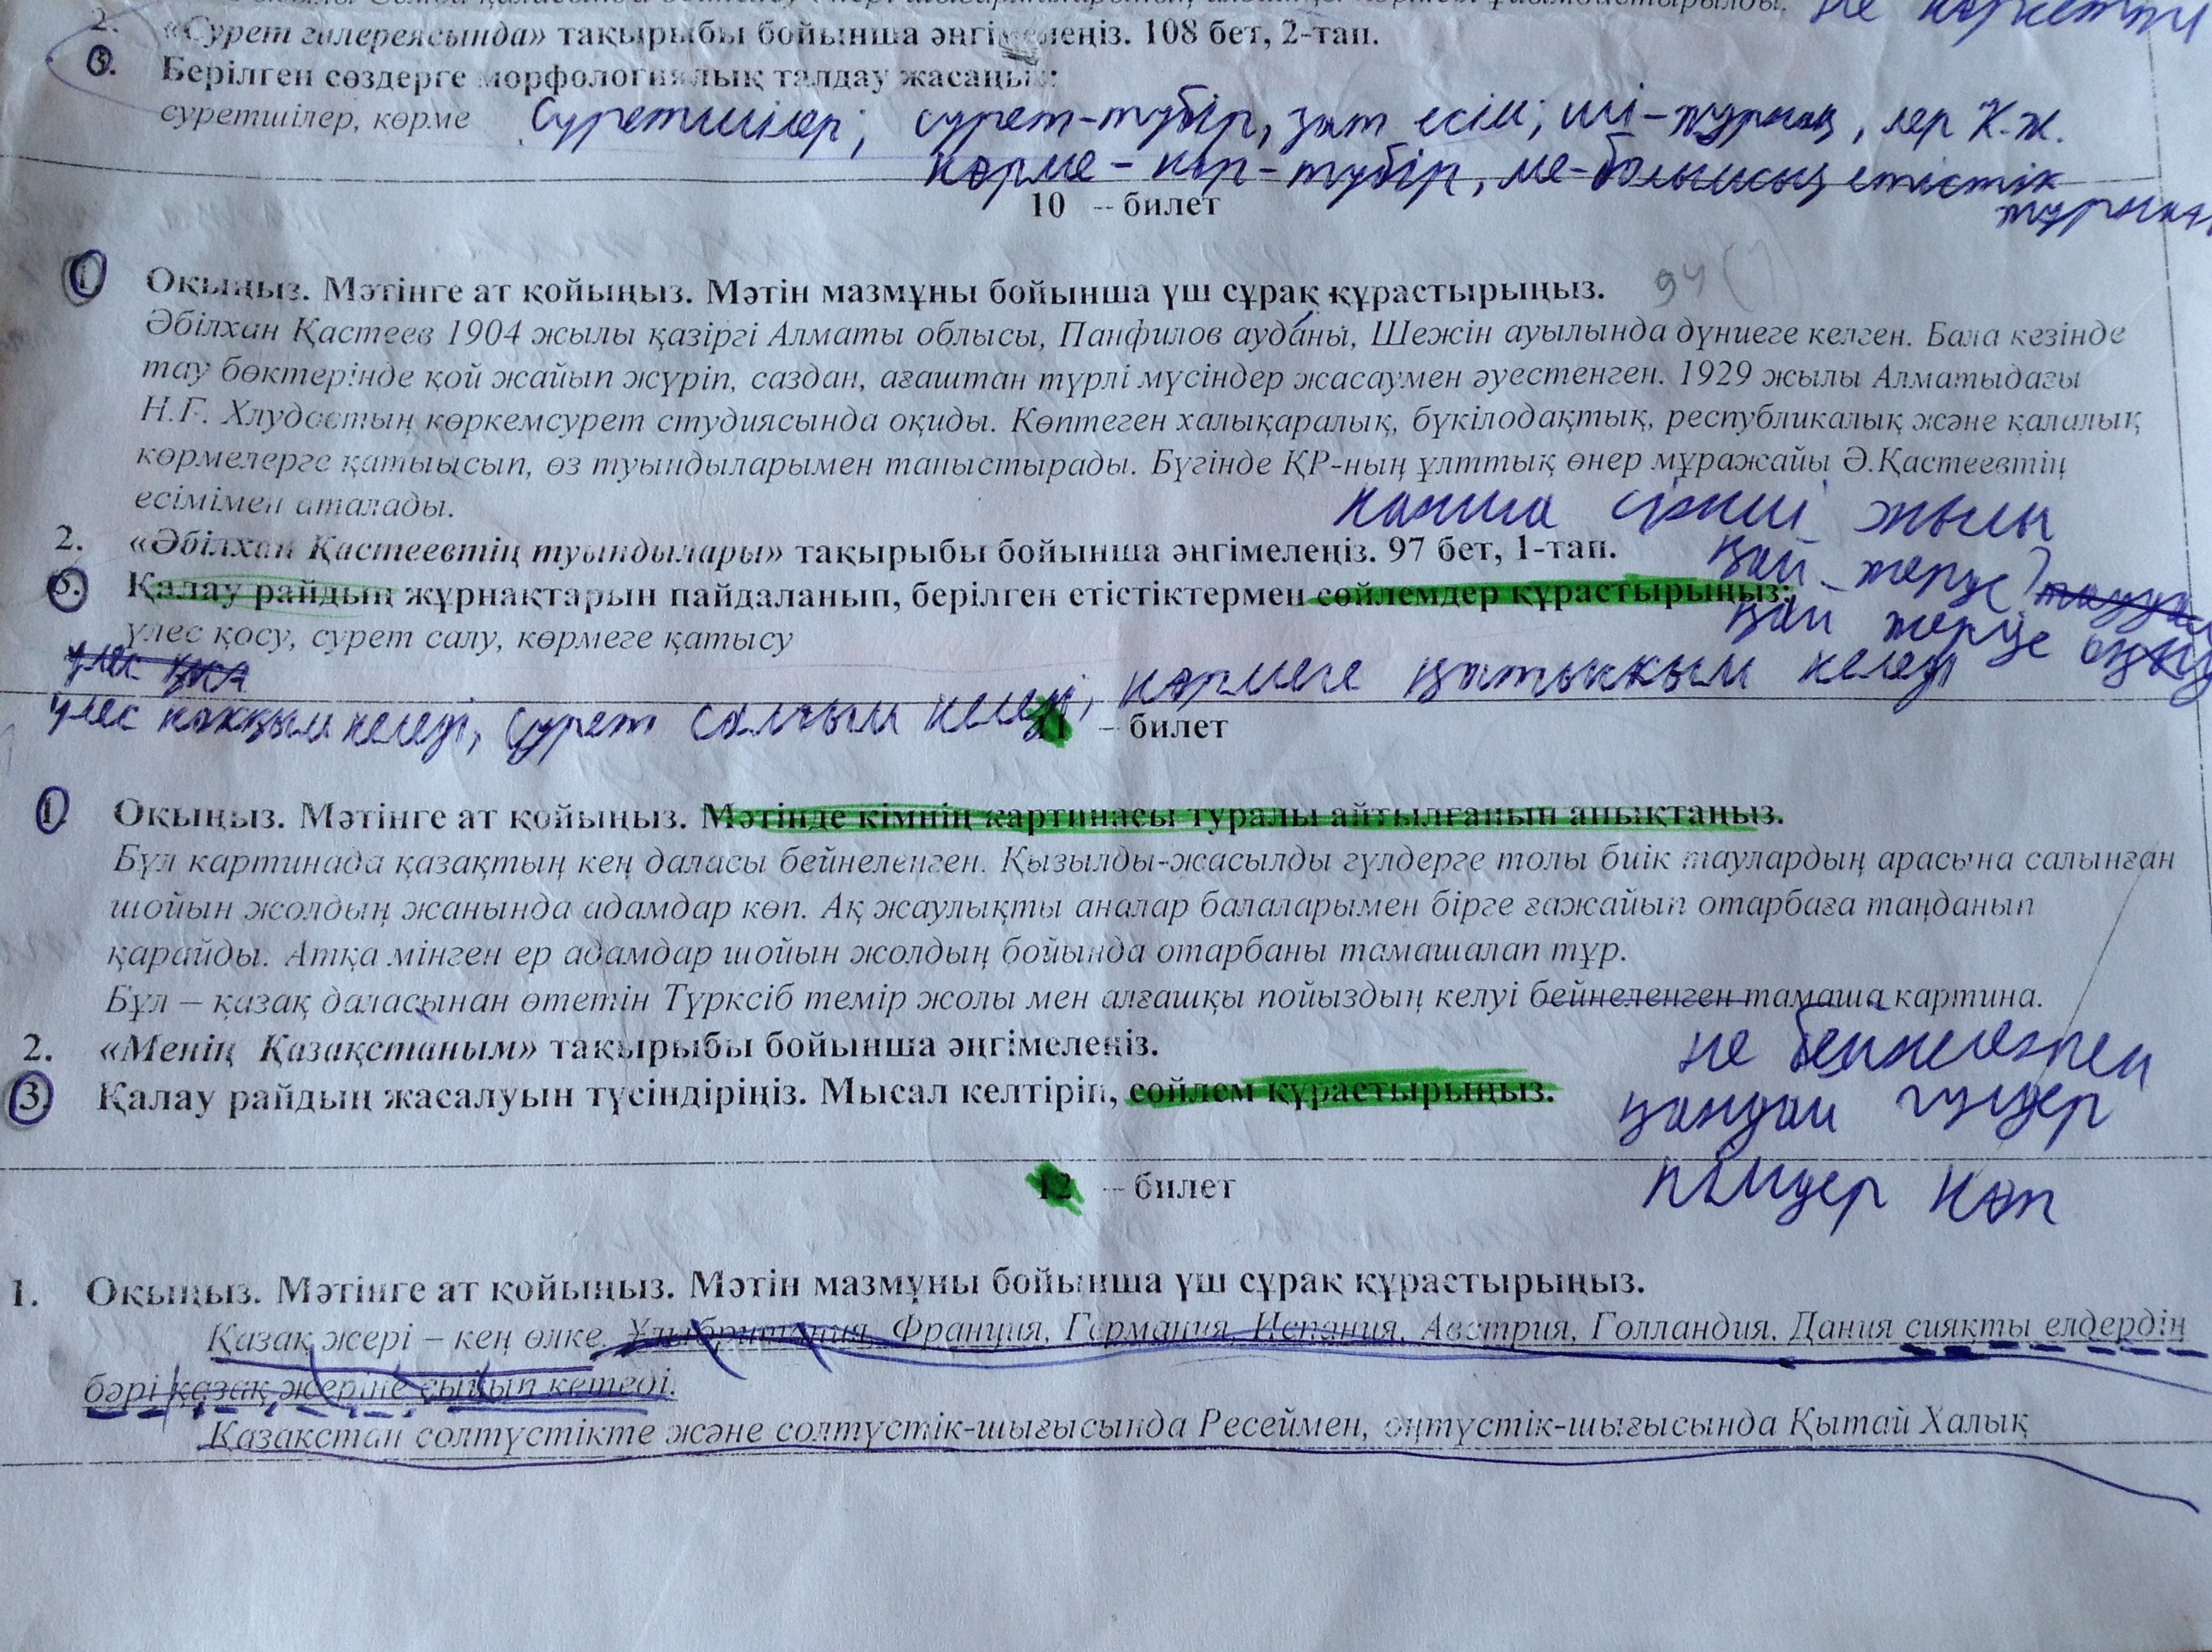 2. «Сурет галереясында» тақырыбы бойынша әңгімелеңіз. 108 бет, 2-тап.
3. Берілген сөздерге морфологиялық талдау жасаңыз:
суретшілер, көрме Суретшілер; сурет-түбір, зат есім; ші-жұрнақ, лер К.ж.
көрме - көр-түбір, ме-болымсыз етістік
жұрнақ
10 – билет
1. Оқыңыз. Мәтінге ат қойыңыз. Мәтін мазмұны бойынша үш сұрақ құрастырыңыз. 94
Әбілхан Қастеев 1904 жылы қазіргі Алматы облысы, Панфилов ауданы, Шежін ауылында дүниеге келген. Бала кезінде
тау бөктерінде қой жайып жүріп, саздан, ағаштан түрлі мүсіндер жасаумен әуестенген. 1929 жылы Алматыдағы
Н.Г. Хлудовтың көркемсурет студиясында оқиды. Көптеген халықаралық, бүкілодақтық, республикалық және қалалық
көрмелерге қатысып, өз туындыларымен таныстырады. Бүгінде ҚР-ның ұлттық өнер мұражайы Ә.Қастеевтің
есімімен аталады.
жылы
2. «Әбілхан Қастеевтің туындылары» тақырыбы бойынша әңгімелеңіз. 97 бет, 1-тап.
қай жерде
3. Қалау райдың жұрнақтарын пайдаланып, берілген етістіктермен сөйлемдер құрастырыңыз:
қай жерде
үлес қосу, сурет салу, көрмеге қатысу
көрмеге қатыккым келеді
үлес коккым келеді, сурет салғым келеді,
11 – билет
1. Оқыңыз. Мәтінге ат қойыңыз. Мәтінде кімнің картинасы туралы айтылғанын анықтаңыз.
Бұл картинада қазақтың кең даласы бейнеленген. Қызылды-жасылды гүлдерге толы биік таулардың арасына салынған
шойын жолдың жанында адамдар көп. Ақ жаулықты аналар балаларымен бірге ғажайып отарбаға таңданып
қарайды. Атқа мінген ер адамдар шойын жолдың бойында отарбаны тамашалап тұр.
Бұл – қазақ даласынан өтетін Түрксіб темір жолы мен алғашқы пойыздың келуі бейнеленген тамаша картина.
2. «Менің Қазақстаным» тақырыбы бойынша әңгімелеңіз.
не бейнеленген
3. Қалау райдың жасалуын түсіндіріңіз. Мысал келтіріп, сөйлем құрастырыңыз.
қандай гүлдер
көп
12 – билет
1. Оқыңыз. Мәтінге ат қойыңыз. Мәтін мазмұны бойынша үш сұрақ құрастырыңыз.
Қазақ жері – кең өлке. Ұлыбритания, Франция, Германия, Испания, Австрия, Голландия, Дания сияқты елдердің
бәрі қазақ жеріне сыйып кетеді.
Қазақстан солтүстікте және солтүстік-шығысында Ресеймен, оңтүстік-шығысында Қытай Халық